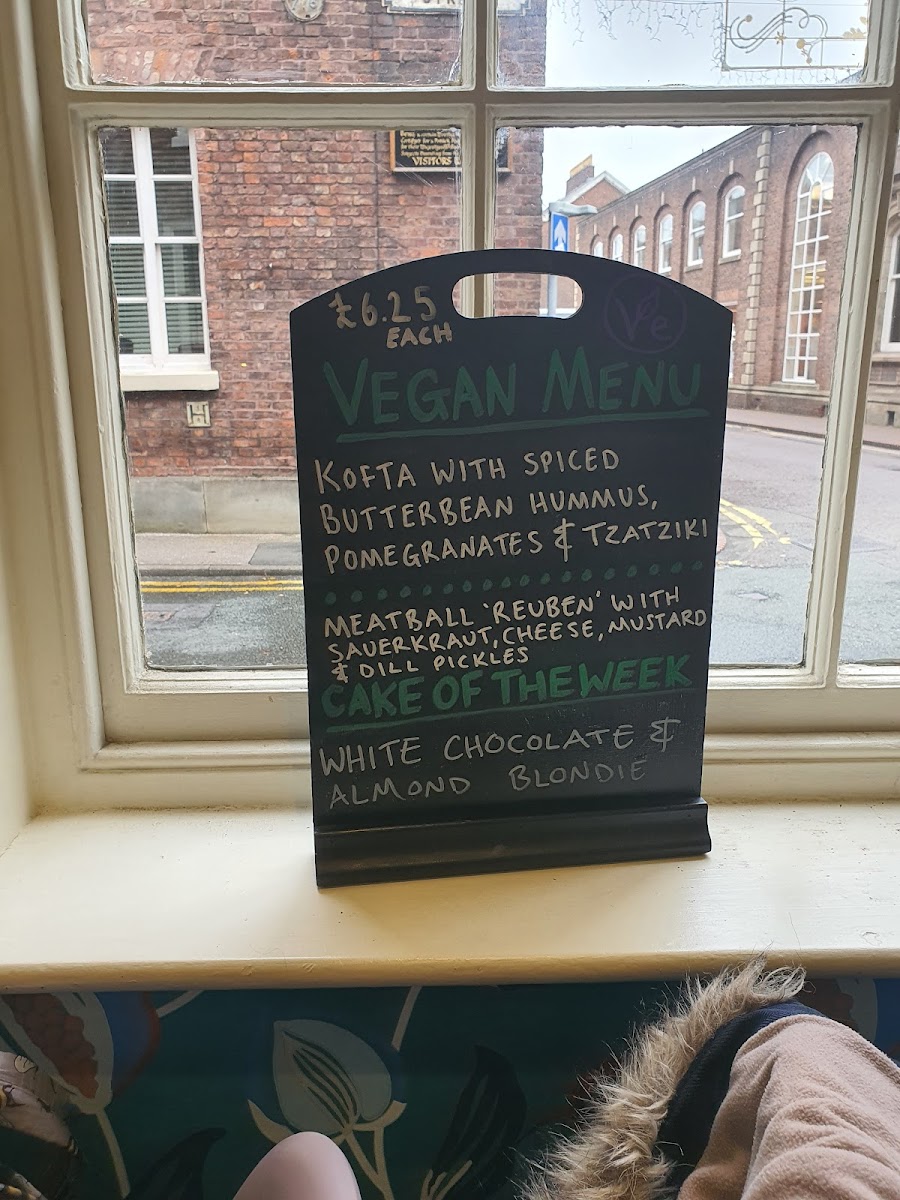 VISITORS
£6.25
EACH
Ve
VEGAN MENU
KOFTA WITH SPICED
BUTTERBEAN HUMMUS,
POMEGRANATES & TZATZIKI
MEATBALL 'REUBEN' WITH
SAUERKRAUT, CHEESE, MUSTARD
& DILL PICKLES
CAKE OF THE WEEK
WHITE CHOCOLATE &
ALMOND BLONDIE
H